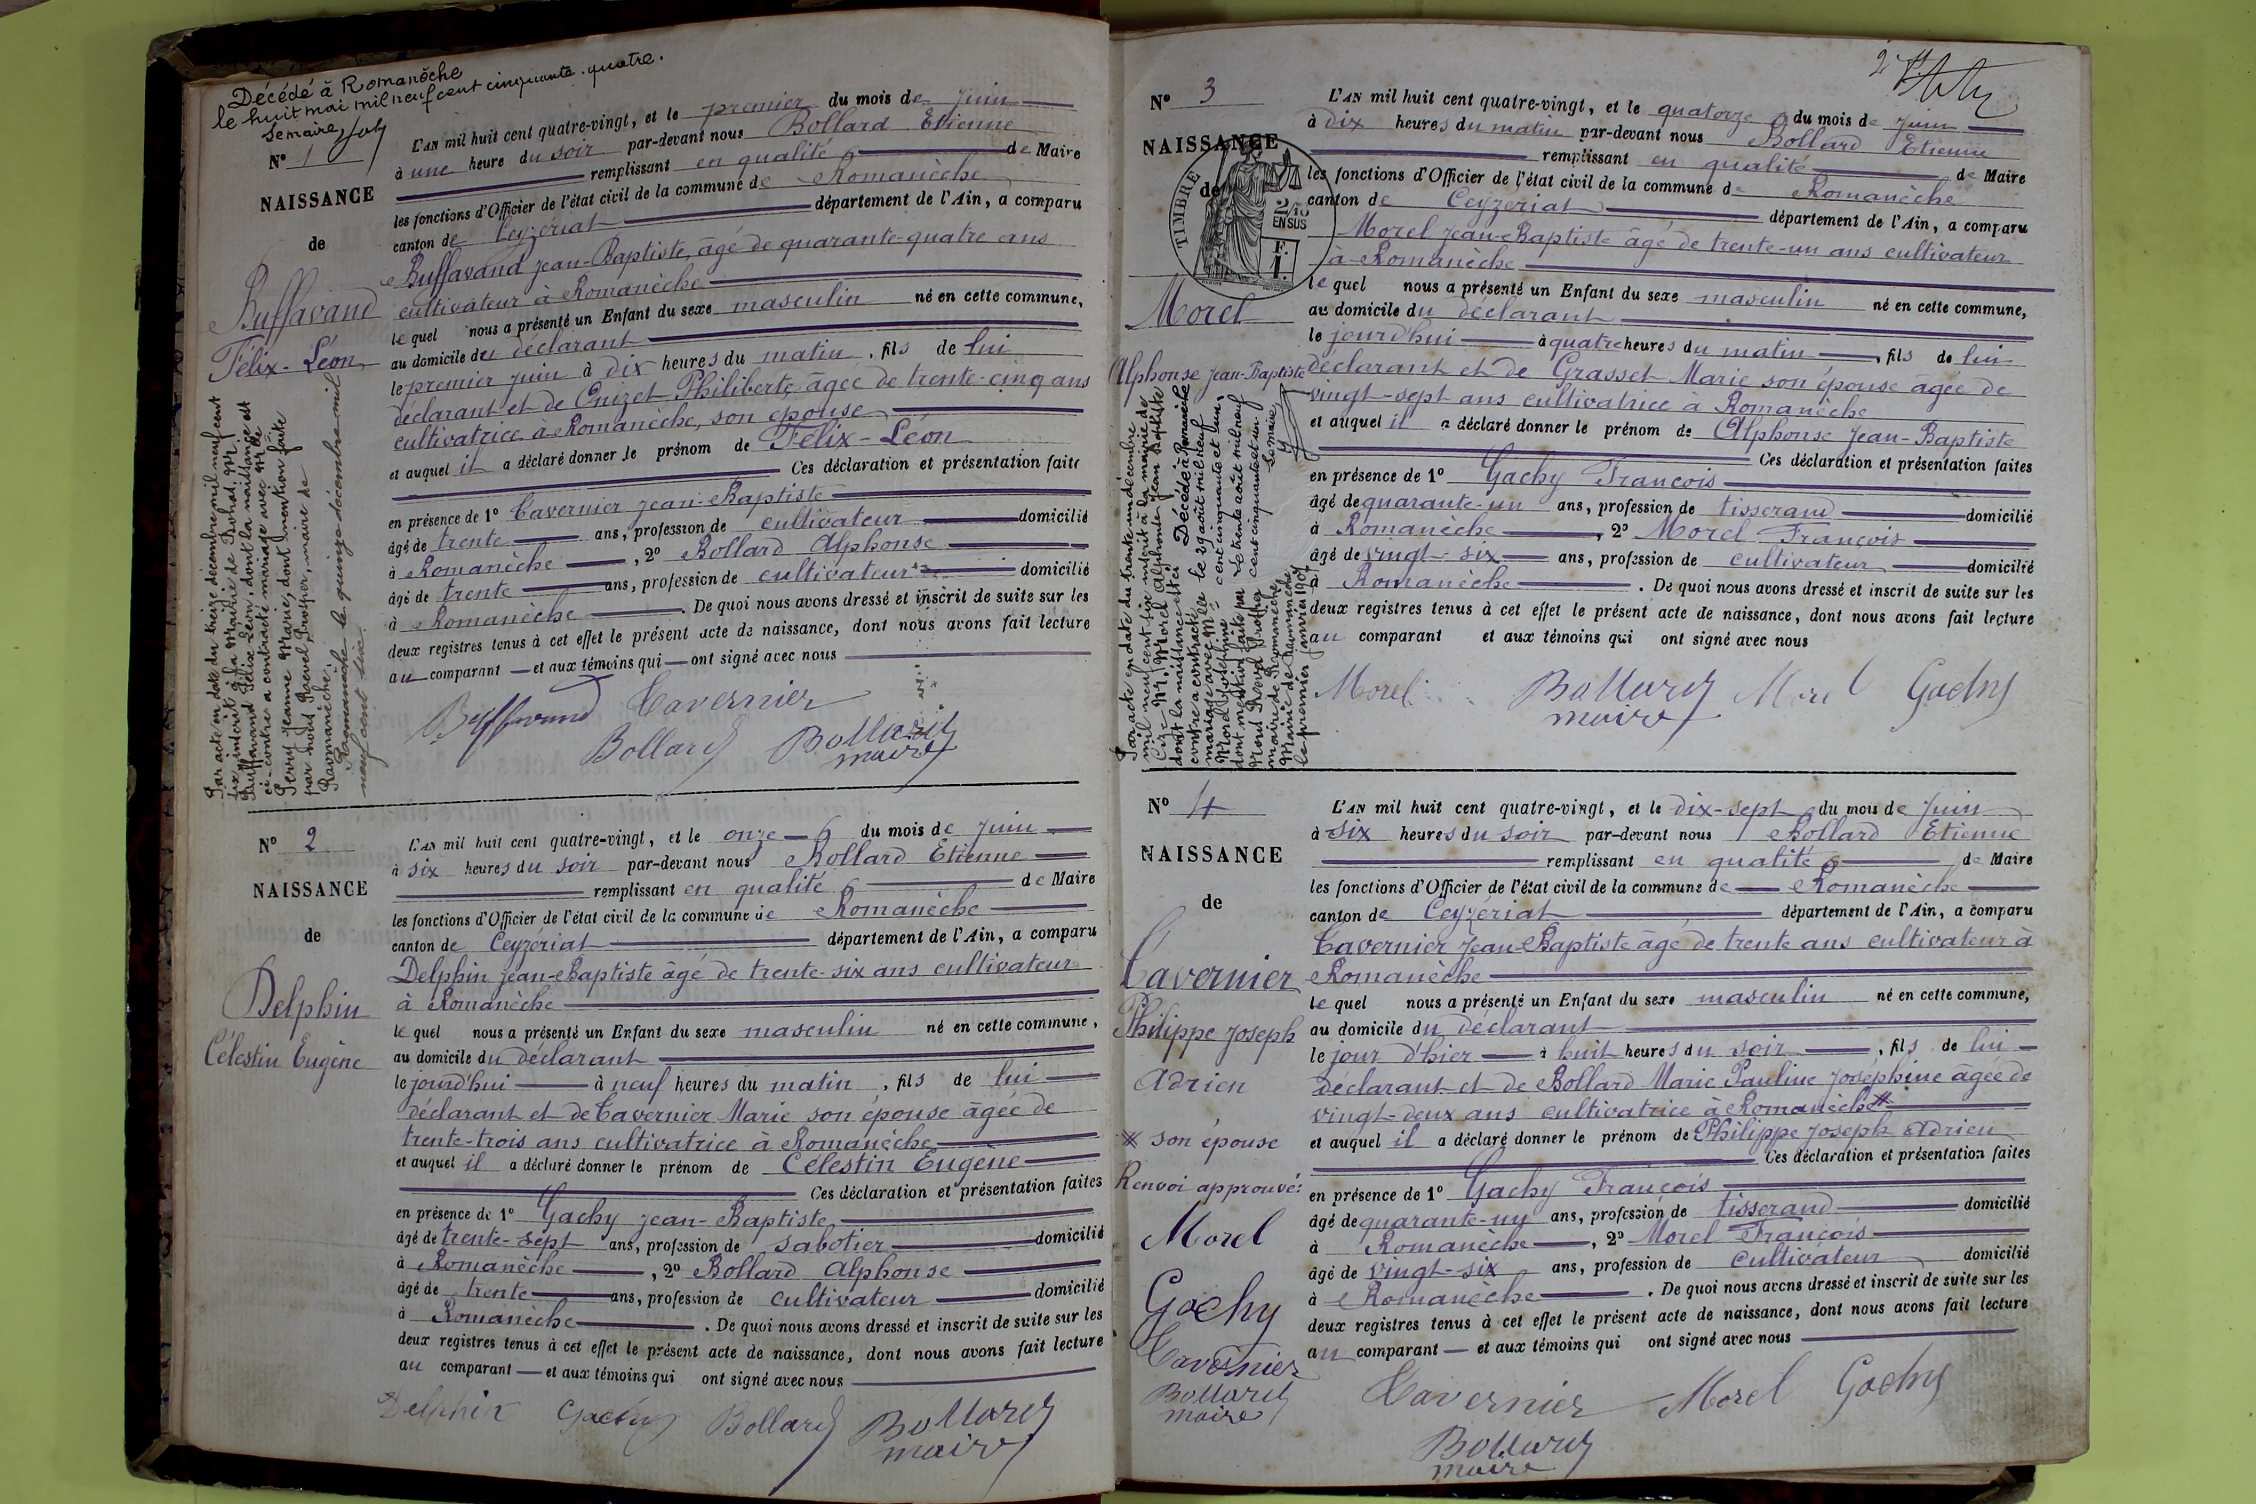 Décédé à Romanèche
le huit mai mil neuf cent cinquante-quatre.
Le maire
N° 1
NAISSANCE
de
Buffavand
Félix-Léon
L'AN mil huit cent quatre-vingt, et le premier du mois de juin
à une heure du soir par-devant nous Bollard Etienne
remplissant en qualité de Maire
les fonctions d'Officier de l'état civil de la commune de Romanèche
canton de Ceyzériat département de l'Ain, a comparu
Buffavand Jean-Baptiste, âgé de quarante-quatre ans
cultivateur à Romanèche
lequel nous a présenté un Enfant du sexe masculin né en cette commune,
au domicile du déclarant
le premier juin à dix heures du matin, fils de lui
déclarant et de Philiberte âgée de trente-cinq ans
cultivatrice à Romanèche, son épouse
et auquel il a déclaré donner le prénom de Félix-Léon
Ces déclaration et présentation faites
en présence de 1° Cavernier Jean-Baptiste
âgé de trente ans, profession de cultivateur domicilié
à Romanèche, 2° Bollard Alphonse
âgé de trente ans, profession de cultivateur domicilié
à Romanèche. De quoi nous avons dressé et inscrit de suite sur les
deux registres tenus à cet effet le présent acte de naissance, dont nous avons fait lecture
au comparant et aux témoins qui ont signé avec nous
Buffavand Cavernier
Bollard Bollard
maire
Par acte en date du treize décembre mil neuf cent
six, inscrit à la Mairie de Mr.
Buffavand Félix Léon, dont la naissance est
ci-contre a contracté mariage avec Mlle
Perry Jeanne Marie, dont mention faite
par nous Prosper, maire de
Romanèche.
Romanèche le quinze décembre mil
neuf cent six.
N° 2
NAISSANCE
de
Delphin
Célestin Eugène
L'AN mil huit cent quatre-vingt, et le onze du mois de juin
à six heures du soir par-devant nous Bollard Etienne
remplissant en qualité de Maire
les fonctions d'Officier de l'état civil de la commune de Romanèche
canton de Ceyzériat département de l'Ain, a comparu
Delphin Jean-Baptiste âgé de trente-six ans cultivateur
à Romanèche
lequel nous a présenté un Enfant du sexe masculin né en cette commune,
au domicile du déclarant
le jourd'hui à neuf heures du matin, fils de lui
déclarant et de Cavernier Marie son épouse âgée de
trente-trois ans cultivatrice à Romanèche
et auquel il a déclaré donner le prénom de Célestin Eugène
Ces déclaration et présentation faites
en présence de 1° Gachy Jean-Baptiste
âgé de trente-sept ans, profession de sabotier domicilié
à Romanèche, 2° Bollard Alphonse
âgé de trente ans, profession de cultivateur domicilié
à Romanèche. De quoi nous avons dressé et inscrit de suite sur les
deux registres tenus à cet effet le présent acte de naissance, dont nous avons fait lecture
au comparant et aux témoins qui ont signé avec nous
Delphin Gachy Bollard Bollard
maire
2
N° 3
NAISSANCE
de
TIMBRE
2/10
EN SUS
F.
1.
Morel
Alphonse Jean-Baptiste
L'AN mil huit cent quatre-vingt, et le quatorze du mois de juin
à dix heures du matin par-devant nous Bollard Etienne
remplissant en qualité de Maire
les fonctions d'Officier de l'état civil de la commune de Romanèche
canton de Ceyzériat département de l'Ain, a comparu
Morel Jean-Baptiste âgé de trente-un ans cultivateur
à Romanèche
lequel nous a présenté un Enfant du sexe masculin né en cette commune,
au domicile du déclarant
le jourd'hui à quatre heures du matin, fils de lui
déclarant et de Grasset Marie son épouse âgée de
vingt-sept ans cultivatrice à Romanèche
et auquel il a déclaré donner le prénom de Alphonse Jean-Baptiste
Ces déclaration et présentation faites
en présence de 1° Gachy François
âgé de quarante-un ans, profession de tisserand domicilié
à Romanèche, 2° Morel François
âgé de vingt-six ans, profession de cultivateur domicilié
à Romanèche. De quoi nous avons dressé et inscrit de suite sur les
deux registres tenus à cet effet le présent acte de naissance, dont nous avons fait lecture
au comparant et aux témoins qui ont signé avec nous
Morel Bollard Morel Gachy
maire
Par acte en date du trente un décembre
mil neuf cent six inscrit à la mairie de
Mr. Morel Alphonse Jean Baptiste
dont la naissance est ci
contre a contracté
mariage avec Mlle
Morel Joséphine
dont mention faite par
Nous Prosper
maire de Romanèche
Mairie de Romanèche
le premier janvier 1907
Décédé à Romanèche
le 29 août mil neuf
cent cinquante et un,
le trente août mil neuf
cent cinquante et un
Le maire
N° 4
NAISSANCE
de
Cavernier
Philippe Joseph
Adrien
son épouse
Renvoi approuvé:
Morel
Gachy
Cavernier
Bollard
maire
L'AN mil huit cent quatre-vingt, et le dix-sept du mois de juin
à six heures du soir par-devant nous Bollard Etienne
remplissant en qualité de Maire
les fonctions d'Officier de l'état civil de la commune de Romanèche
canton de Ceyzériat département de l'Ain, a comparu
Cavernier Jean-Baptiste âgé de trente ans cultivateur à
Romanèche
lequel nous a présenté un Enfant du sexe masculin né en cette commune,
au domicile du déclarant
le jour d'hier à huit heures du soir, fils de lui
déclarant et de Bollard Marie Pauline Joséphine âgée de
vingt-deux ans cultivatrice à Romanèche
et auquel il a déclaré donner le prénom de Philippe Joseph Adrien
Ces déclaration et présentation faites
en présence de 1° Gachy François
âgé de quarante-un ans, profession de tisserand domicilié
à Romanèche, 2° Morel François
âgé de vingt-six ans, profession de cultivateur domicilié
à Romanèche. De quoi nous avons dressé et inscrit de suite sur les
deux registres tenus à cet effet le présent acte de naissance, dont nous avons fait lecture
au comparant et aux témoins qui ont signé avec nous
Cavernier Morel Gachy
Bollard
maire